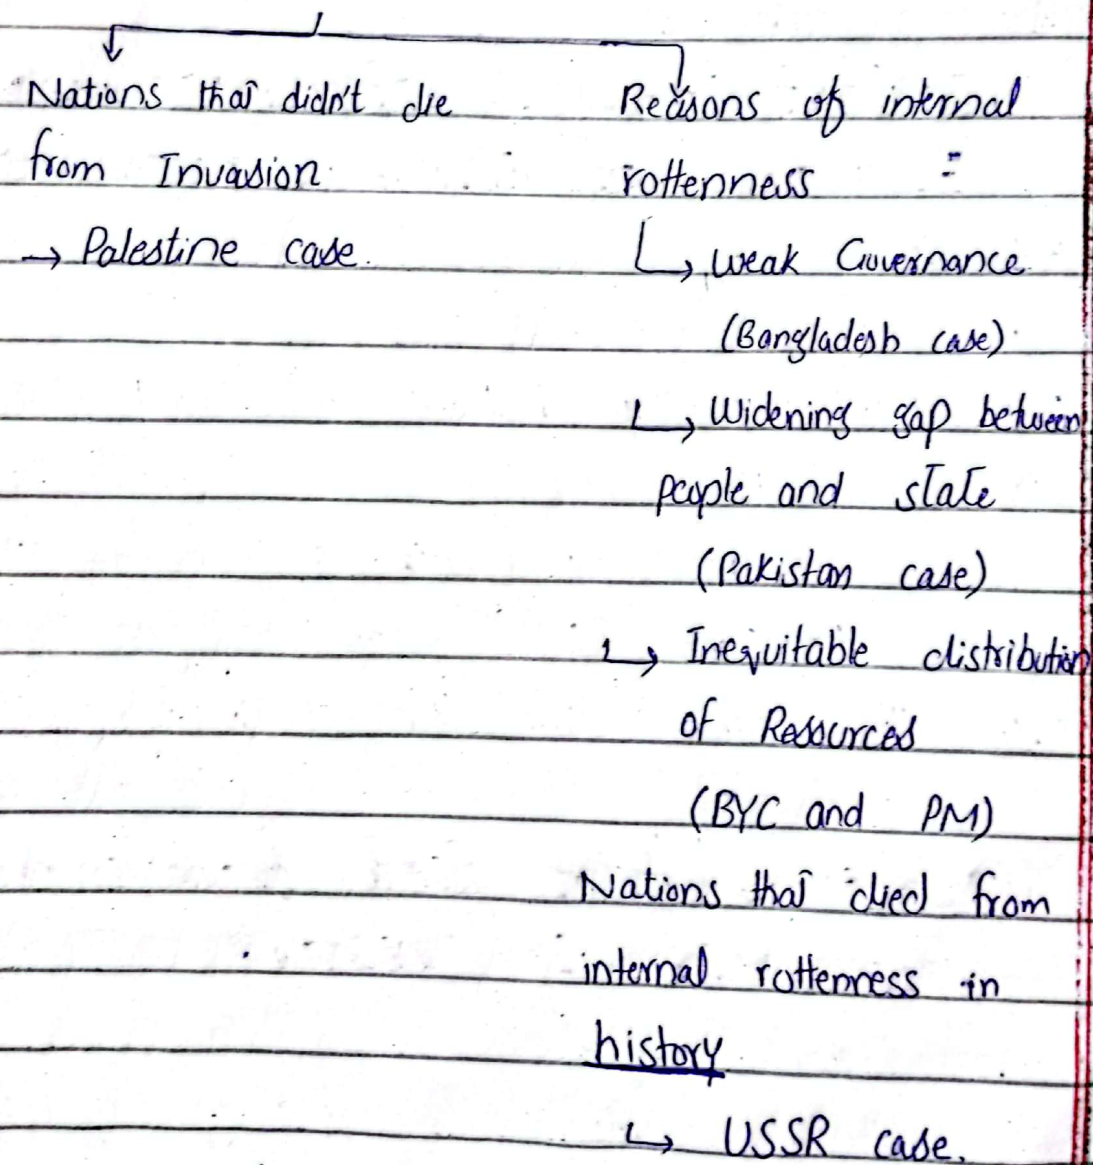 Nations that didn't die
from Invasion
→ Palestine case.
Reasons of internal
rottenness :
↳ Weak Governance
(Bangladesh case)
↳ Widening gap between
people and state
(Pakistan case)
↳ Inequitable distribution
of Resources
(BYC and PM)
Nations that died from
internal rottenness in
history
↳ USSR case.